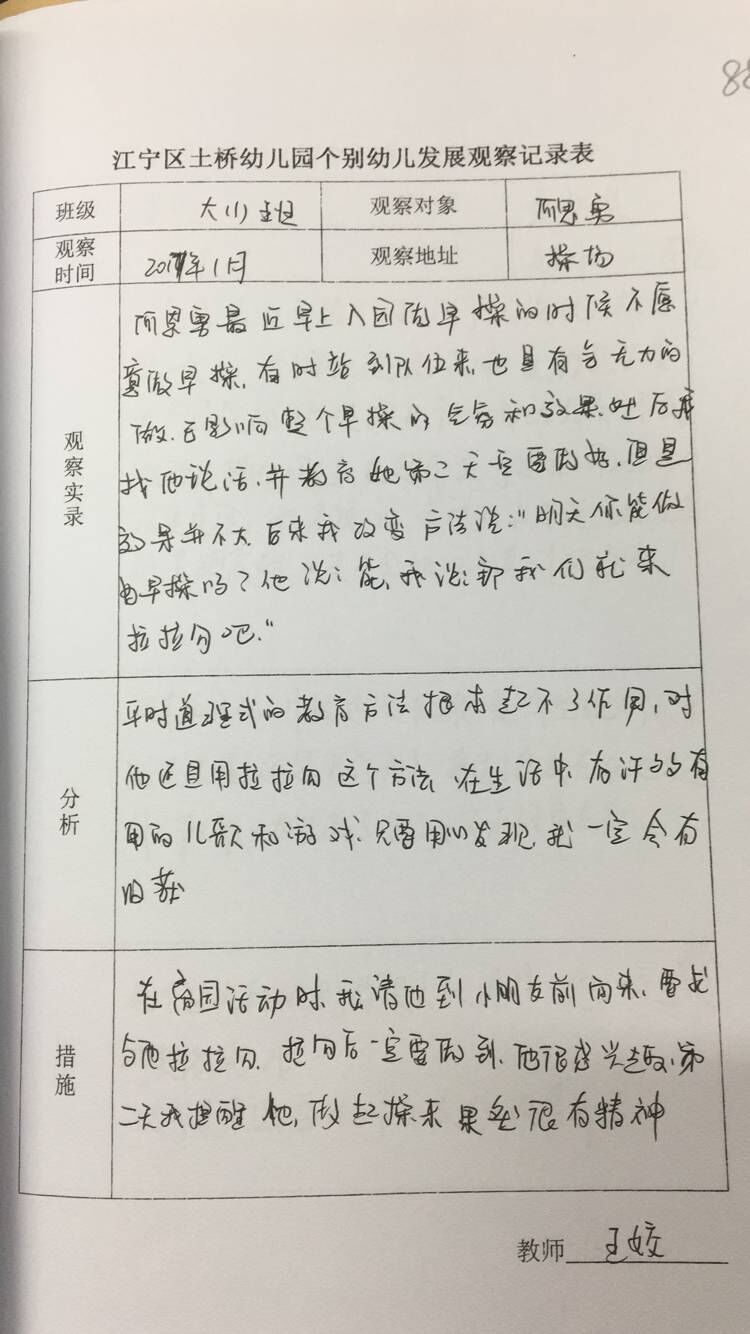 88
江宁区土桥幼儿园个别幼儿发展观察记录表
班级 大(1)班 观察对象 阿恩勇
观察时间 2017年1月 观察地址 操场
观察实录
阿恩勇最近早上入园做早操的时候不愿
意做早操,有时站到队伍来,也是有气无力的
做.已影响整个早操的气氛和效果.
找他说话,并教育她第二天一定要做好,但是
效果并不大.后来我改变方法说:“明天你能做
早操吗?他说:能,我说:那我们就来
拉拉勾吧.“
分析
平时道理式的教育方法根本起不了作用,对
他还是用拉拉勾这个方法.在生活中,有许多有
用的儿歌和游戏.只要用心发现,我一定会有
收获
措施
在离园活动时,我请他到小朋友前面来,要求
与他拉拉勾.拉勾后一定要做到.他很感兴趣,第
二天我提醒他,做起操来果然很有精神
教师 王姣